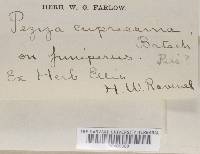 HERB. W. G. FARLOW.
Peziza cupressina
Batsch
on Juniperus.
Ex Herb Ellis
H. W. Ravenel